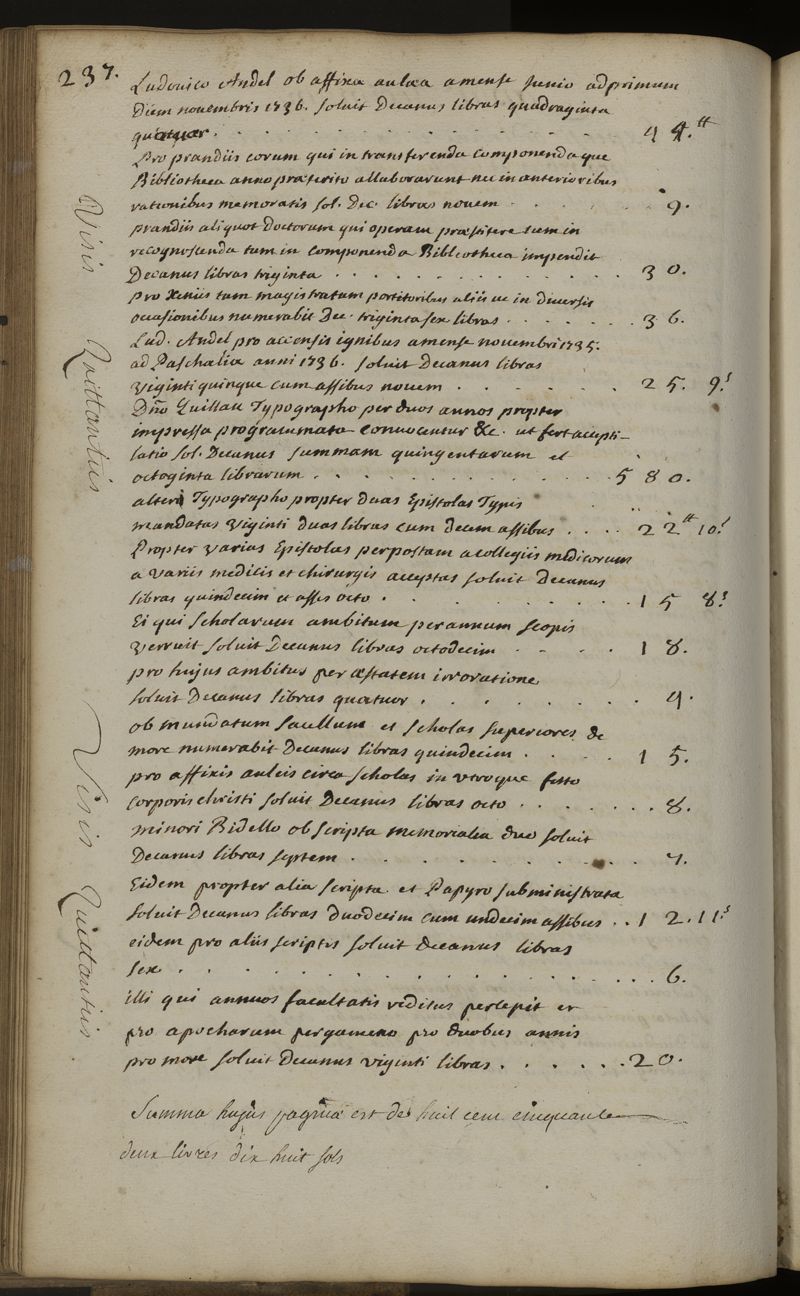 237.
Ludovico Andel ob affixa aulœa a mense Junio ad primum
Diem novembris 1736. soluit Decanus libras quadraginta
quatuor. . . . . . . . . . . . . . . . 44.tt
Pro prandiis eorum qui in transferenda componendaque
Bibliotheca anno præterito allaborarunt nec in anterioribus
rationibus memoratis sol. Dec. libras novem . . . . . 9.
prandiis aliquot doctorum qui operam præstitere tum in
recognoscenda tum in componenda Bibliotheca impendit
Decanus libras triginta . . . . . . . . . . . . 30.
pro xeniis tum magistratum portitoribus aliis ve in diversis
occasionibus numerabit Dec. triginta sex libras . . . . . . . 36.
Lud. Andel pro accensis ignibus a mense novembri 1735.
ad Paschalia anni 1736. soluit Decanus libras
viginti quinque cum assibus novem . . . . . . . 25. 9s
Dño Quillau Typographo per duos annos propter
impressa programmata convocentur &c. ut fert accepti-
latio sol. Decanus summam quingentarum et
octoginta librarum . . . . . . . . . . . . . 580.
alteri Typographo propter duas Epistolas Typis
mandatas viginti duas libras cum decem assibus . . . . 22tt 10s
Propter varias Epistolas per postam a collegiis medicorum
a variis medicis et chirurgis acceptas soluit Decanus
libras quindecim et asses octo . . . . . . . . . . 15 8s
Ei qui scholarum ambitum per annum scopis
verruit soluit Decanus libras octodecim . . . . 18.
pro hujus ambitus per æstatem irroratione
soluit Decanus libras quatuor . . . . . . . . 4.
ob mundatum sacellum et scholas superiores de
more numerabit Decanus libras quindecim . . . . . 15.
pro affixis auleis circa scholas in utroque festo
corporis christi soluit Decanus libras octo . . . . . . . 8.
minori Ridello ob scripta memorialia duo soluit
Decanus libras septem . . . . . . . . . . . 7.
Eidem propter alia scripta et Papyro subministrata
soluit Decanus libras duodecim cum undecim assibus . . 12. 11s
eidem pro aliis scriptis soluit decanus libras
sex . . . . . . . . . . . . . . . . 6.
illi qui annuos facultatis reditus percepit et
pro apocharum pergameno pro duobus annis
pro more soluit Decanus viginti libras . . . . . . 20.
Summa hujus paginæ est de huit cent cinquante
deux livres dix huit sols
Visis Quittantiis
Visis Quittantiis